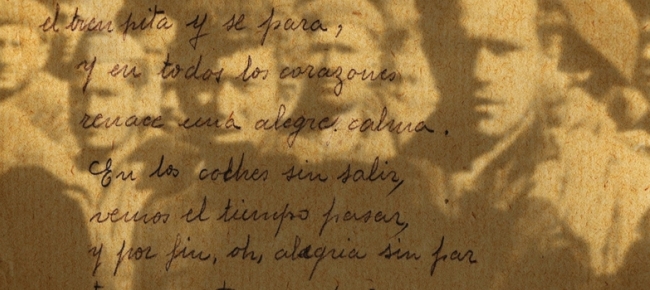 el tren pita y se para,
y en todos los corazones
renace una alegre calma.
En los coches sin salir,
vemos el tiempo pasar,
y por fin, oh, alegria sin par